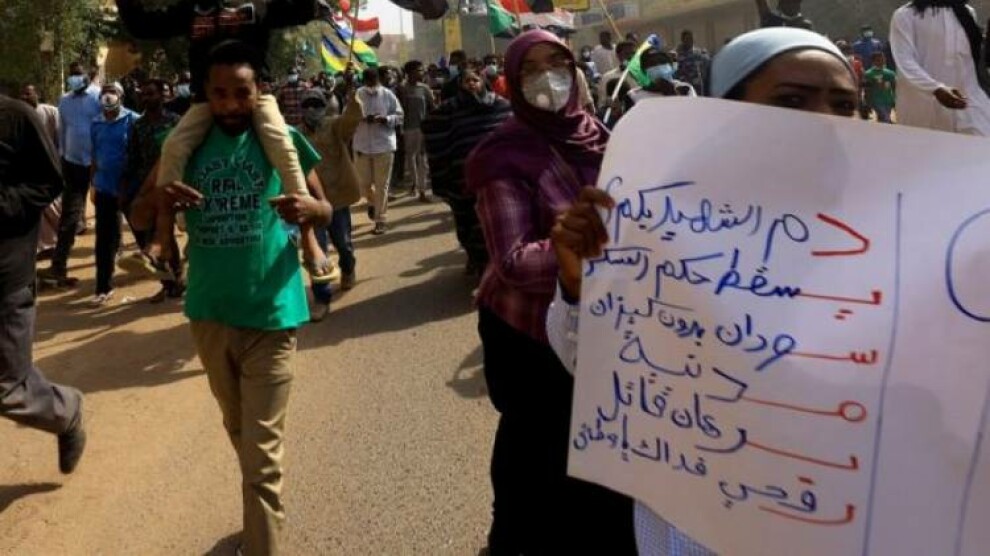 REAL
XTREME
دم الشهيد بكم؟
يسقط حكم العسكر
سودان بدون كيزان
مدنية
برهان قاتل
روحي فداك ياوطني